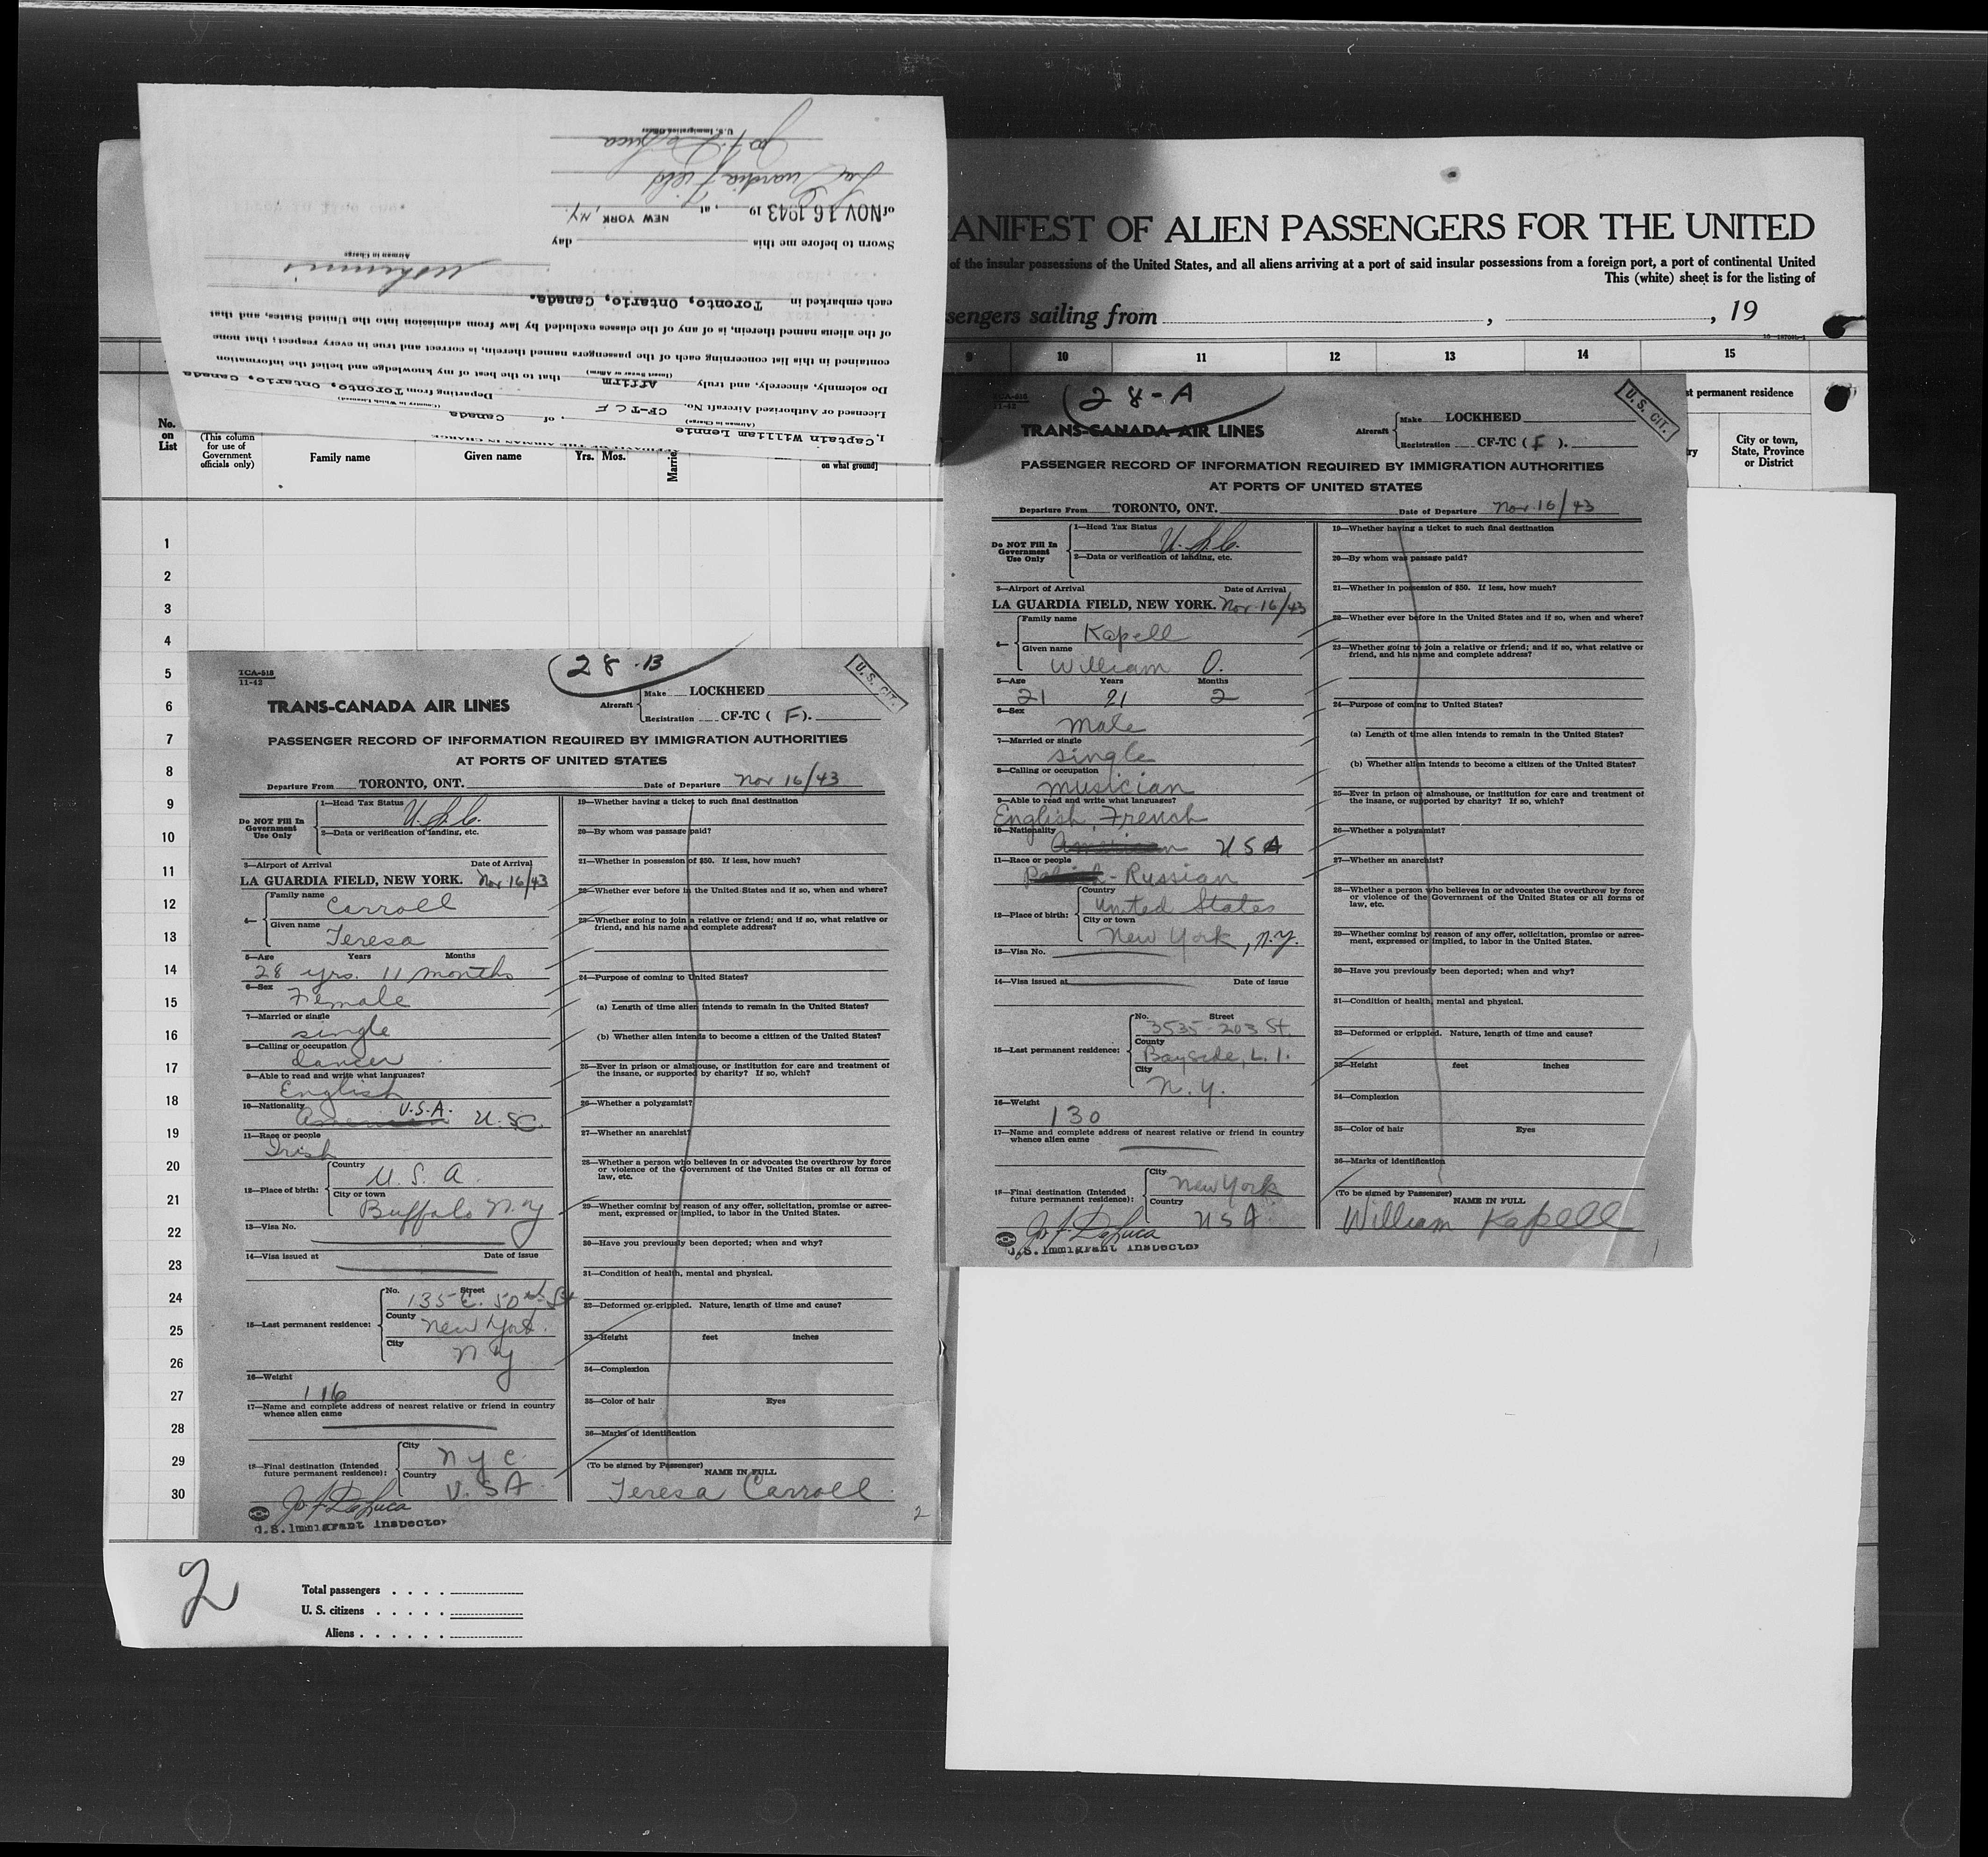 I, Captain William Lennie, of Canada
(Airman in Charge) (Country in Which Licensed)
Licensed or Authorized Aircraft No. CF-TCF Departing from Toronto, Ontario, Canada
Do solemnly, sincerely, and truly Affirm that to the best of my knowledge and belief the information
contained in this list concerning each of the passengers named therein, is correct and true in every respect; that none
of the aliens named therein, is of any of the classes excluded by law from admission into the United States, and that
each embarked in Toronto, Ontario, Canada.
Airman in Charge
Sworn to before me this day
of NOV 16 1943 19 , at NEW YORK, NY.
La Guardia Field
U. S. Immigration Officer
ANIFEST OF ALIEN PASSENGERS FOR THE UNITED
of the insular possessions of the United States, and all aliens arriving at a port of said insular possessions from a foreign port, a port of continental United
This (white) sheet is for the listing of
sengers sailing from , , 19
9 10 11 12 13 14 15
t permanent residence
City or town,
State, Province
or District
No.
on
List
(This column
for use of
Government
officials only)
Family name Given name Yrs. Mos. on what ground]
1
2
3
4
5
6
7
8
9
10
11
12
13
14
15
16
17
18
19
20
21
22
23
24
25
26
27
28
29
30
28-B
TCA-518
11-42
U. S. CIT.
TRANS-CANADA AIR LINES
Aircraft Make LOCKHEED
Registration CF-TC ( F ).
PASSENGER RECORD OF INFORMATION REQUIRED BY IMMIGRATION AUTHORITIES
AT PORTS OF UNITED STATES
Departure From TORONTO, ONT. Date of Departure Nov 16/43
Do NOT Fill In
Government
Use Only
1—Head Tax Status U.S.C.
2—Data or verification of landing, etc.
3—Airport of Arrival Date of Arrival
LA GUARDIA FIELD, NEW YORK. Nov 16/43
4— Family name
Carroll
Given name
Teresa
5—Age Years Months
28 yrs. 11 months
6—Sex
Female
7—Married or single
single
8—Calling or occupation
dancer
9—Able to read and write what languages?
English
10—Nationality U.S.A.
American U.S.C.
11—Race or people
Irish
12—Place of birth: Country
U. S. A.
City or town
Buffalo N.Y
13—Visa No.
14—Visa issued at Date of issue
15—Last permanent residence: No. Street
135 E. 50th St
County
New York
City
N Y
16—Weight
116
17—Name and complete address of nearest relative or friend in country
whence alien came
18—Final destination (Intended
future permanent residence): City
N Y C
Country
U. S A
Jos F DeLuca
U.S. Immigrant Inspector
19—Whether having a ticket to such final destination
20—By whom was passage paid?
21—Whether in possession of $50. If less, how much?
22—Whether ever before in the United States and if so, when and where?
23—Whether going to join a relative or friend; and if so, what relative or
friend, and his name and complete address?
24—Purpose of coming to United States?
(a) Length of time alien intends to remain in the United States?
(b) Whether alien intends to become a citizen of the United States?
25—Ever in prison or almshouse, or institution for care and treatment of
the insane, or supported by charity? If so, which?
26—Whether a polygamist?
27—Whether an anarchist?
28—Whether a person who believes in or advocates the overthrow by force
or violence of the Government of the United States or all forms of
law, etc.
29—Whether coming by reason of any offer, solicitation, promise or agree-
ment, expressed or implied, to labor in the United States.
30—Have you previously been deported; when and why?
31—Condition of health, mental and physical.
32—Deformed or crippled. Nature, length of time and cause?
33—Height feet inches
34—Complexion
35—Color of hair Eyes
36—Marks of identification
(To be signed by Passenger) NAME IN FULL
Teresa Carroll
2
28-A
TCA-518
11-42
U. S. CIT.
TRANS-CANADA AIR LINES
Aircraft Make LOCKHEED
Registration CF-TC ( F ).
PASSENGER RECORD OF INFORMATION REQUIRED BY IMMIGRATION AUTHORITIES
AT PORTS OF UNITED STATES
Departure From TORONTO, ONT. Date of Departure Nov 16/43
Do NOT Fill In
Government
Use Only
1—Head Tax Status U.S.C.
2—Data or verification of landing, etc.
3—Airport of Arrival Date of Arrival
LA GUARDIA FIELD, NEW YORK. Nov 16/43
4— Family name
Kapell
Given name
William O.
5—Age Years Months
21 21 2
6—Sex
Male
7—Married or single
single
8—Calling or occupation
musician
9—Able to read and write what languages?
English French
10—Nationality
American U S A
11—Race or people
Polish - Russian
12—Place of birth: Country
United States
City or town
New York, N.Y.
13—Visa No.
14—Visa issued at Date of issue
15—Last permanent residence: No. Street
3535-203 St.
County
Bayside, L. I.
City
N. Y.
16—Weight
130
17—Name and complete address of nearest relative or friend in country
whence alien came
18—Final destination (Intended
future permanent residence): City
New York
Country
U S A
Jos F DeLuca
U.S. Immigrant Inspector
19—Whether having a ticket to such final destination
20—By whom was passage paid?
21—Whether in possession of $50. If less, how much?
22—Whether ever before in the United States and if so, when and where?
23—Whether going to join a relative or friend; and if so, what relative or
friend, and his name and complete address?
24—Purpose of coming to United States?
(a) Length of time alien intends to remain in the United States?
(b) Whether alien intends to become a citizen of the United States?
25—Ever in prison or almshouse, or institution for care and treatment of
the insane, or supported by charity? If so, which?
26—Whether a polygamist?
27—Whether an anarchist?
28—Whether a person who believes in or advocates the overthrow by force
or violence of the Government of the United States or all forms of
law, etc.
29—Whether coming by reason of any offer, solicitation, promise or agree-
ment, expressed or implied, to labor in the United States.
30—Have you previously been deported; when and why?
31—Condition of health, mental and physical.
32—Deformed or crippled. Nature, length of time and cause?
33—Height feet inches
34—Complexion
35—Color of hair Eyes
36—Marks of identification
(To be signed by Passenger) NAME IN FULL
William Kapell
2
Total passengers . . . .
U. S. citizens . . . . .
Aliens . . . . . .